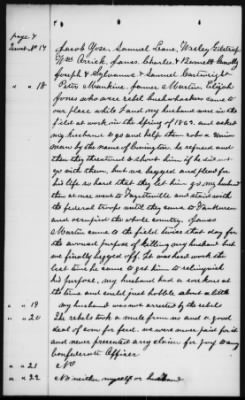 page 4
Intert. No 14 Jacob Yose, Samuel Leane, Wesley Gilstrap
Wm Orrick, James, Charles & Bennett
Joseph & Sylvanus & Samuel Cartwright
" " 18 Peter Mankins, James Martin, Elijah
Jones who were rebel bushwhackers came to
our place while I and my husband were in the
field at work in the Spring of 1863. and asked
my husband to go and help them rob a Union
man by the name of Covington he refused and
then they threatened to shoot him if he did not
go with them, but we begged and plead for
his life so hard that they let him go, my husband
then or soon went to Fayetteville and stayed with
the federal troops until they came to Vanburen
and occupied the whole country. James
Martin came to the field twice that day for
the avowed purpose of killing my husband but
we finally begged off. It was hard work the
last time he came to get him to relinquish
his purpose, my husband had a
at the time and could just hobble about a little
" " 19 my husband was not arrested by the rebels
" " 20 The rebels took a mule from us and a good
deal of corn for feed. we were never paid for it
and never presented any claim for pay to any
Confederate Officer
" " 21 No
" " 22 No neither myself or husband